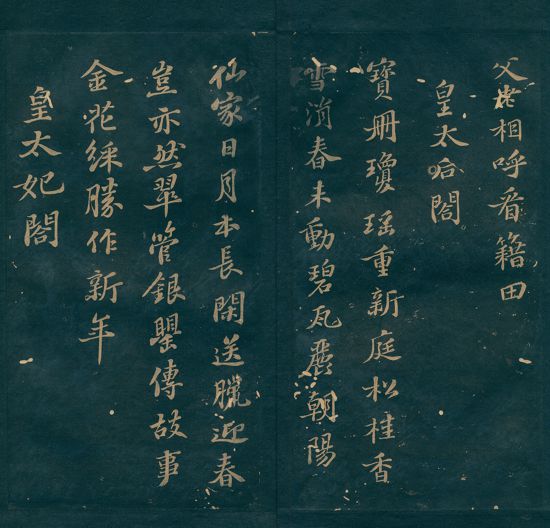 父老相呼看籍田
皇太后閣
寶冊瓊瑤重新庭松桂香
雪消春未動碧瓦麗朝陽
仙家日月本長閑送臘迎春
豈亦然翠管銀罌傳故事
金花綵勝作新年
皇太妃閣